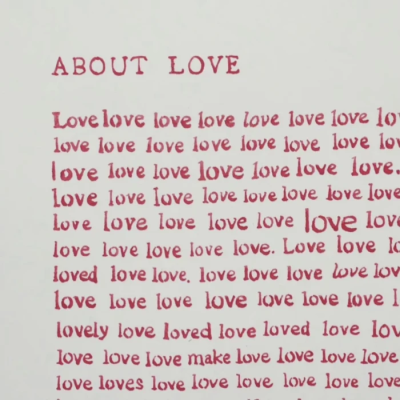 ABOUT LOVE
Love love love love love love love lo
love love love love love love love lov
love love love love love love love.
love love love love love love love love
love love love love love love love
love love love love love. Love love lo
loved love love, love love love love lov
love love love love love love love l
lovely love loved love loved love lov
love love love make love love love love
love loves love love love love love love